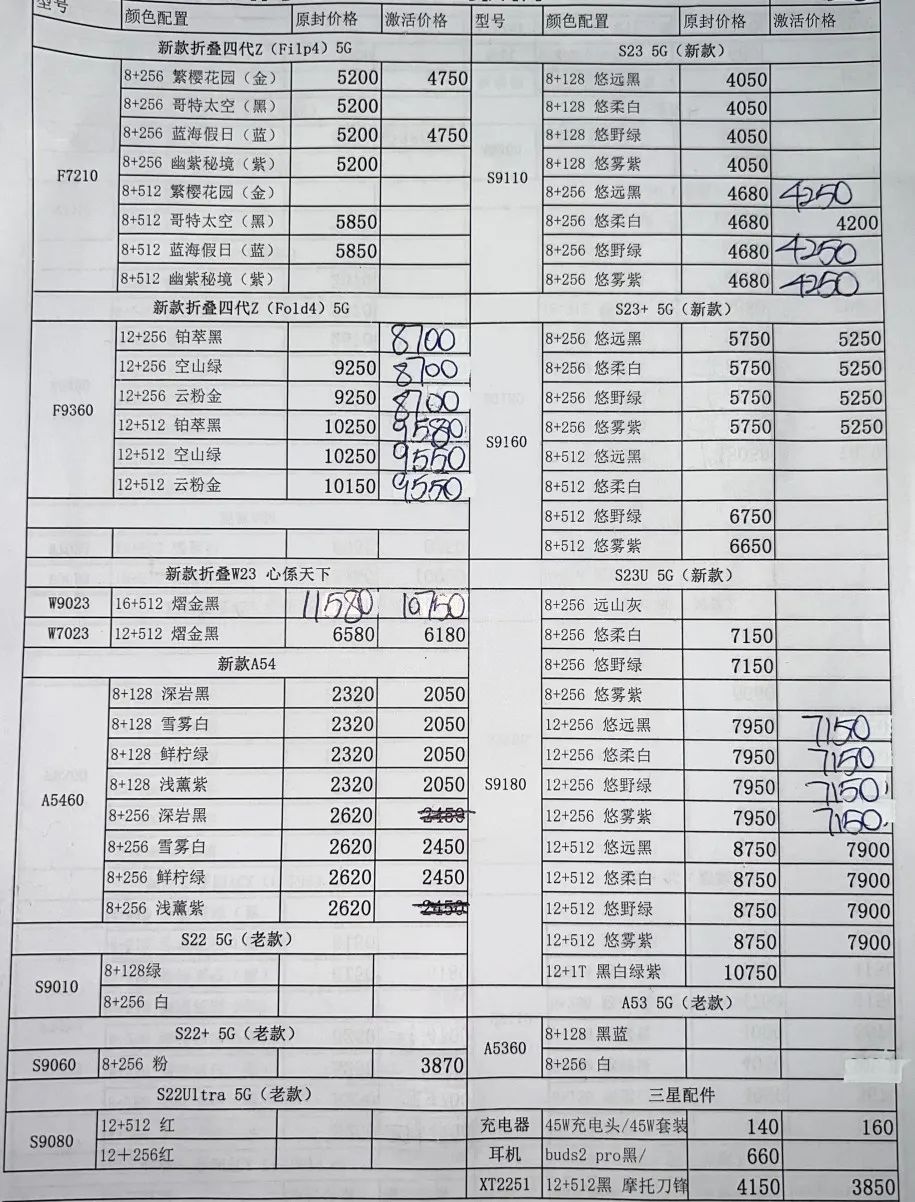 型号 颜色配置 原封价格 激活价格
新款折叠四代Z（Filp4）5G
F7210
8+256 繁樱花园（金） 5200 4750
8+256 哥特太空（黑） 5200
8+256 蓝海假日（蓝） 5200 4750
8+256 幽紫秘境（紫） 5200
8+512 繁樱花园（金）
8+512 哥特太空（黑） 5850
8+512 蓝海假日（蓝） 5850
8+512 幽紫秘境（紫）
新款折叠四代Z（Fold4）5G
F9360
12+256 铂萃黑 8700
12+256 空山绿 9250 8700
12+256 云粉金 9250 8700
12+512 铂萃黑 10250 9580
12+512 空山绿 10250 9550
12+512 云粉金 10150 9550
新款折叠W23 心係天下
W9023 16+512 熠金黑 11580 10750
W7023 12+512 熠金黑 6580 6180
新款A54
A5460
8+128 深岩黑 2320 2050
8+128 雪雾白 2320 2050
8+128 鲜柠绿 2320 2050
8+128 浅薰紫 2320 2050
8+256 深岩黑 2620 2450
8+256 雪雾白 2620 2450
8+256 鲜柠绿 2620 2450
8+256 浅薰紫 2620 2450
S22 5G（老款）
S9010
8+128绿
8+256 白
S22+ 5G（老款）
S9060 8+256 粉 3870
S22Ultra 5G（老款）
S9080
12+512 红
12＋256红
型号 颜色配置 原封价格 激活价格
S23 5G（新款）
S9110
8+128 悠远黑 4050
8+128 悠柔白 4050
8+128 悠野绿 4050
8+128 悠雾紫 4050
8+256 悠远黑 4680 4250
8+256 悠柔白 4680 4200
8+256 悠野绿 4680 4250
8+256 悠雾紫 4680 4250
S23+ 5G（新款）
S9160
8+256 悠远黑 5750 5250
8+256 悠柔白 5750 5250
8+256 悠野绿 5750 5250
8+256 悠雾紫 5750 5250
8+512 悠远黑
8+512 悠柔白
8+512 悠野绿 6750
8+512 悠雾紫 6650
S23U 5G（新款）
S9180
8+256 远山灰
8+256 悠柔白 7150
8+256 悠野绿 7150
8+256 悠雾紫
12+256 悠远黑 7950 7150
12+256 悠柔白 7950 7150
12+256 悠野绿 7950 7150
12+256 悠雾紫 7950 7150
12+512 悠远黑 8750 7900
12+512 悠柔白 8750 7900
12+512 悠野绿 8750 7900
12+512 悠雾紫 8750 7900
12+1T 黑白绿紫 10750
A53 5G（老款）
A5360
8+128 黑蓝
8+256 白
三星配件
充电器 45W充电头/45W套装 140 160
耳机 buds2 pro黑/ 660
XT2251 12+512黑 摩托刀锋 4150 3850